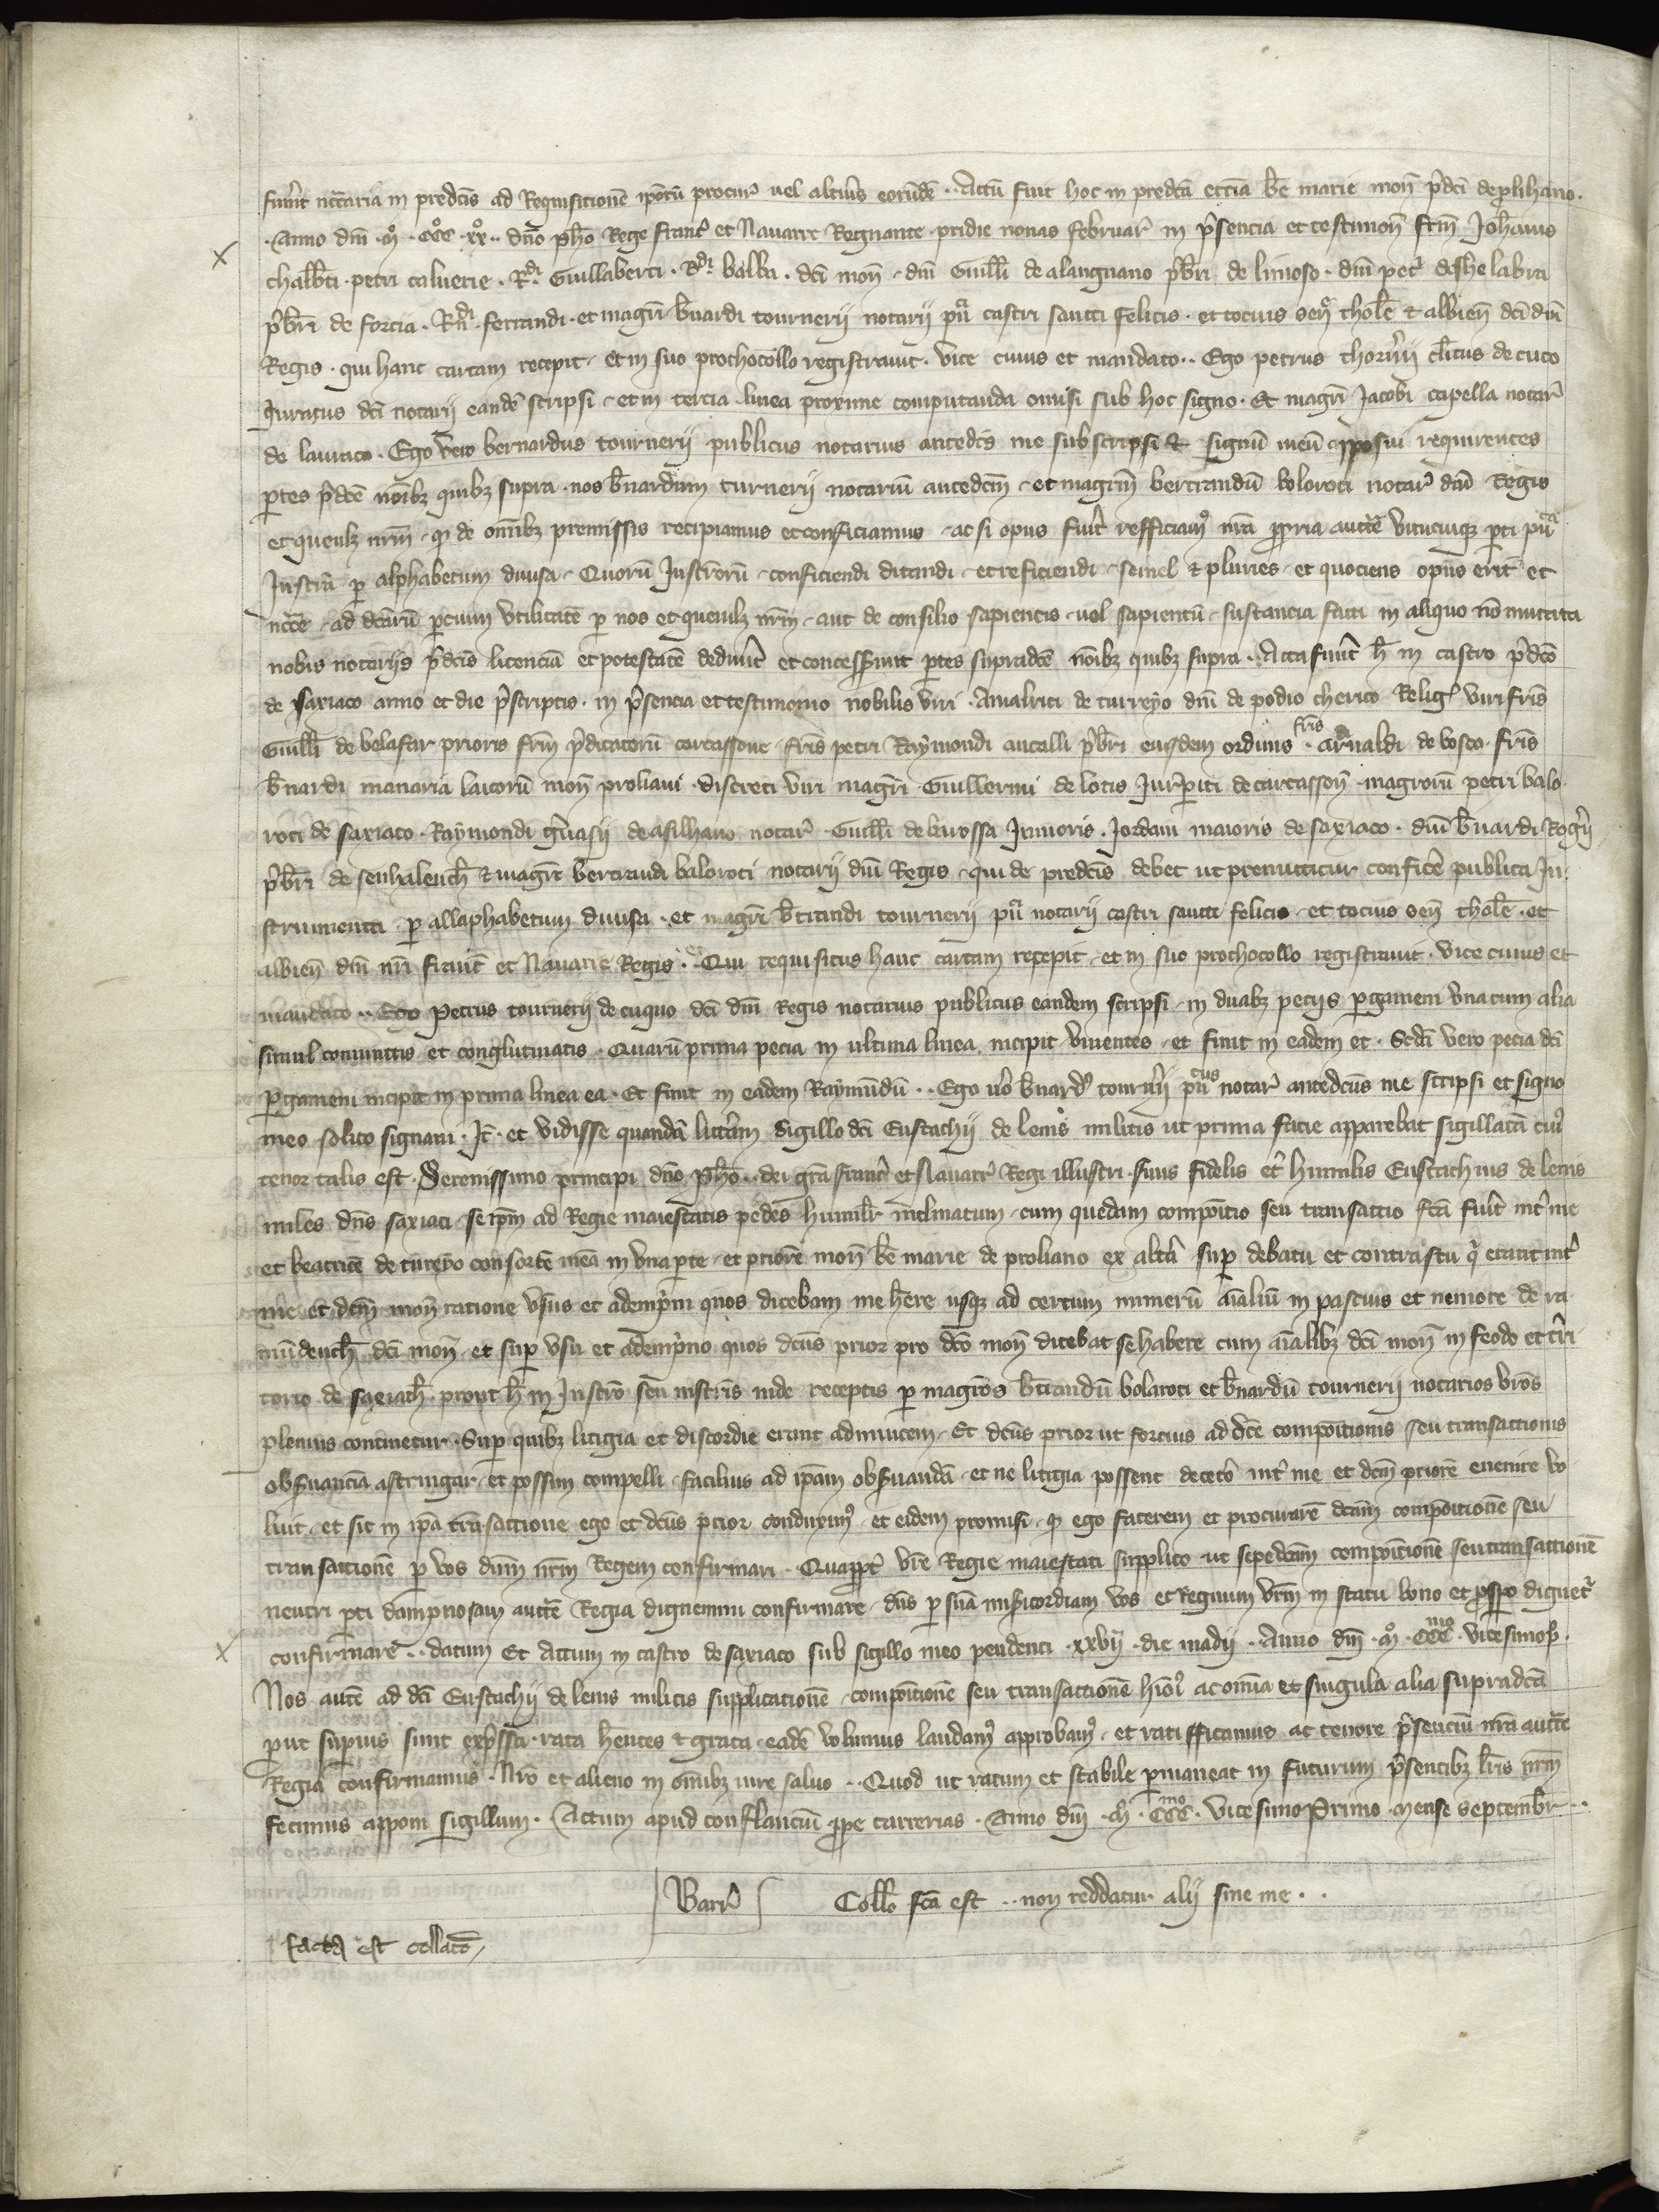 fuerit nccaria in predcis ad Requisicionē ipōrū procur vel alterius eorūdē .. Actū fuit hoc in predcā ecciā bē marie mon̄ p̄dci de plihano.
.Anno dn̄i .mº .cccº .xxº .. dn̄o ph̄o Rege Franc̄ et Navarre Regnante . pridie nonas februar̄ in p̄sencia et testimon̄ frm̄ Joh̄anis
chalb̄ti . petri caluerie . Rdi Guillaberti . Rdi balba . dci mon̄ . dn̄i Guill̄i de alangnano pr̄bri de limoso . dn̄i pet̄ de helabra
pr̄bri de forcia . Rdi . ferrandi . et magrī b̄nardi tournerij notarij pū castri sancti Felicis . et tocius sen̄ thol̄e et albien̄ dci dn̄i
Regis . qui hanc cartam recepit . et in suo prothocollo registravit . Vice cuius et mandato .. Ego petrus thorn̄ij cl̄icus de cuco
Juratus dci notarij eandē scripsi . et in tercia linea proxime computanda omisi sub hoc signo . Et magrī Jacobi capella notar̄
de lauraco . Ego vero bernardus tournerij publicus notarius anted̄cs me subscripsi et signū meū apposui requirentes
ptes p̄dc̄e nōibz quibz supra . nos b̄nardum turnerij notariū anted̄cm̄ . et magrm̄ bertrandū boloroti notar̄ dn̄i Regis
et quemlz nrm̄ . q̄ de om̄ibz premissis recipiamus et conficiamus . ac si opus fuer̄it refficiam nrā ppria auctē unicuiqz pti pūa
Instr̄a p alphabetum divisa . Quorū Instrorū . conficiendi ditandi . et reficiendi . semel et pluries . et quociens opus erit et
ncc̄e . ad dcārū pcium Utilitatē p nos et quemlz nrm̄ . aut de consilio sapientis . vel sapientū . sustancia facti in aliquo nō mutata
nobis notarijs p̄dcis licenciā et potestatē dedeūt et concesserūt ptes supradcē nōibz quibz supra .. Acta fueūt h̄ in castro p̄dco
de saxiaco anno et die p̄scriptis . in p̄sencia et testimonio nobilis viri . Amalrici de turreyo dn̄i de podio cherico Relig viri fris
Guill̄i de belafar prioris frm̄ p̄dicatorū carcassone . fris petri Raymondi aucalli pr̄bri eiusdem ordinis . fris arnaldi de bosco . fris
b̄nardi manaria laicorū mon̄ proliani . discreti viri magrī Guillermi de lotis Jurisperiti de carcasson̄ . magrorū petri balo
roti de saxiaco . Raymondi gervasij de asilhano notar̄ . Guill̄i de burossa Junioris . Jordani maioris de saxiaco . dn̄i b̄nardi Rogerij
pr̄bri de senhalench̄ et magrī bertrandi baloroti notarij dn̄i Regis . qui de predcis debet ut premittitur conficē publica In
strumenta . p allaphabetum divisa . et magrī b̄trandi tournerij pū notarij castri sancti felicis . et tocius sen̄ thol̄e . et
albien̄ dn̄i nri francie et Navarie Regis . Qui requisitus hanc cartam recepit . et in suo prothocollo registravit . Vice cuius et
mandato .. Ego Petrus tournerij de cuquo dci dn̄i Regis notarius publicus eandem scripsi . in duabz pecijs pgameni una cum alia
simul coniunctis et conglutinatis . Quarū prima pecia in ultima linea . incipit viventes . et finit in eadem et . Scdā vero pecia dci
pgameni incipit in prima linea ea . Et finit in eadem Raymūdū .. Ego vo b̄nardus tournerij pūcus notar̄ anted̄cus me scripsi et signo
meo solito signavi . Jt̄ . et vidisse quandā litterām sigillo dci Eustachij de lenis militis ut prima facie apparebat sigillatā cui
tenor talis est . Serenissimo principi dn̄o ph̄o .. dei gr̄a franc̄ et Navarr̄ Regi illustri . suus fidelis et humilis Eustachius de lenis
miles dn̄s saxiaci . se ipm̄ ad Regie maiestatis pedes humil̄r inclinatum . cum quedam compōitio seu transactio fcā fuer̄it int̄ me
et beatricē de tureyo consortē meā in una pte . et priorē mon̄ bē marie de proliano ex alt̄a sup debatu et contrastu q̄ erant int̄
me et dcm̄ mon̄ ratione usus et ademp̄m quos dicebam me h̄ere usqz ad certum numerū aīaliū in pascuis et nemore de ra
mūdench̄ dci mon̄ . et sup usu et ademp̄rio quos dcūs prior pro dco mon̄ dicebat se habere cum aīalibz dci mon̄ in feodo et t̄ri
torio de saxiach̄ . prout h̄ in Instrō seu instris inde receptis p magros b̄trandū bolaroti et b̄nardū tournerij notarios vros
plenius continetur . Sup quibz litigia et discordie erant adinvicem . Et dcūs prior ut forcius ad dcē compōitionis seu transactionis
obs̄vanciā astringar . et possim compelli . facilius ad ipām obs̄vandā . et ne litigia possent decet̄o int̄ me et dcm̄ priorē evenire vo
luit . et sit in ipā transactione ego et dcūs prior conduxim . et eidem promisi . q̄ ego facerem et procurarē dcām compōitionē seu
transactionē p vos dn̄m nrm̄ Regem confirmari . Quappt̄ vrē Regie maiestati supplico . ut sepedcām compōitionē seu transactionē
neutri pti dampnosam auctē Regia dignemini confirmare . dn̄s p suā mīsicordiam vos et Regnum vrm̄ in statu bono et pspo dignetr̄
confirmare .. datum Et Actum in castro de saxiaco sub sigillo meo pendenti . xxvij . die madij . Anno dn̄i .mº .cccmo . vicesimop .
Nos autē ad dci Eustachij de lenis militis supplicationē . compōitionē seu transactionē hiōi ac omīa et singula alia supradcā
put sup̄ius sunt exp̄ssa . rata h̄entes et grata . eadē volumus laudam approbam . et ratifficamus . ac tenore p̄senciū nrā auctē
Regia confirmamus . Nrō et alieno in ōmibz iure salvo .. Quod ut ratum et stabile pmaneat in futurum p̄sentibz lris nrm̄
fecimus apponi sigillum . Actum apud conflanciū ppe carrerias . Anno dn̄i .mº .cccmo . vicesimo Primo . mense septembr ..
Barr̄ Coll̄o fcā est .. non reddatur alij sine me . .
facta est collacō